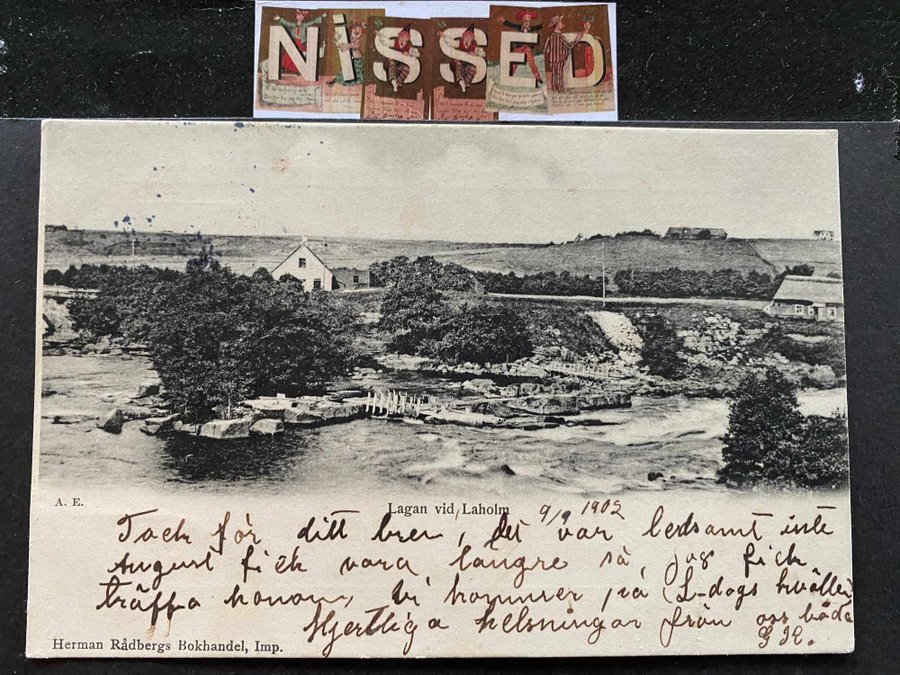 NiSSED
A. E.
Lagan vid Laholm
9/9 1902
Tack för ditt bref, det var ledsamt inte
August fick vara längre så jag fick
träffa honom, Vi kommer på L-dags kvällen
Hjertliga helsningar från oss båda
Herman Rådbergs Bokhandel, Imp.